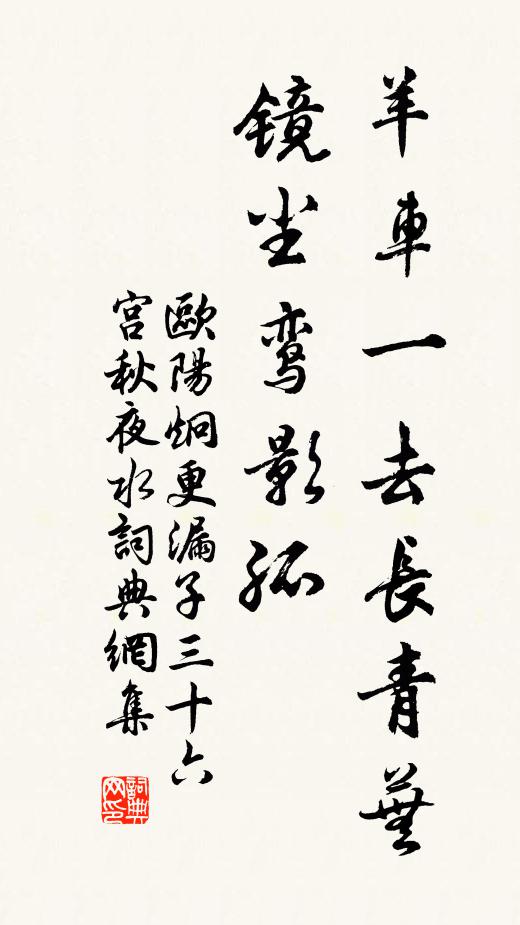 羊車一去長青蕪
镜尘鸾影孤
歐陽炯更漏子三十六
宫秋夜水詞典網集
詞典网印